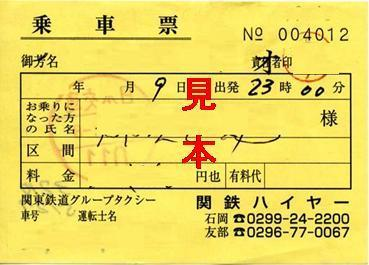 乗車票
№ 004012
御芳名 責任者印
年 月 9日 出発 23時 00分
お乗りになった方の氏名 様
区間
料金 円也 有料代
見本
関東鉄道グループタクシー 関鉄ハイヤー
車号 運転士名 石岡 ☎0299-24-2200
友部 ☎0296-77-0067